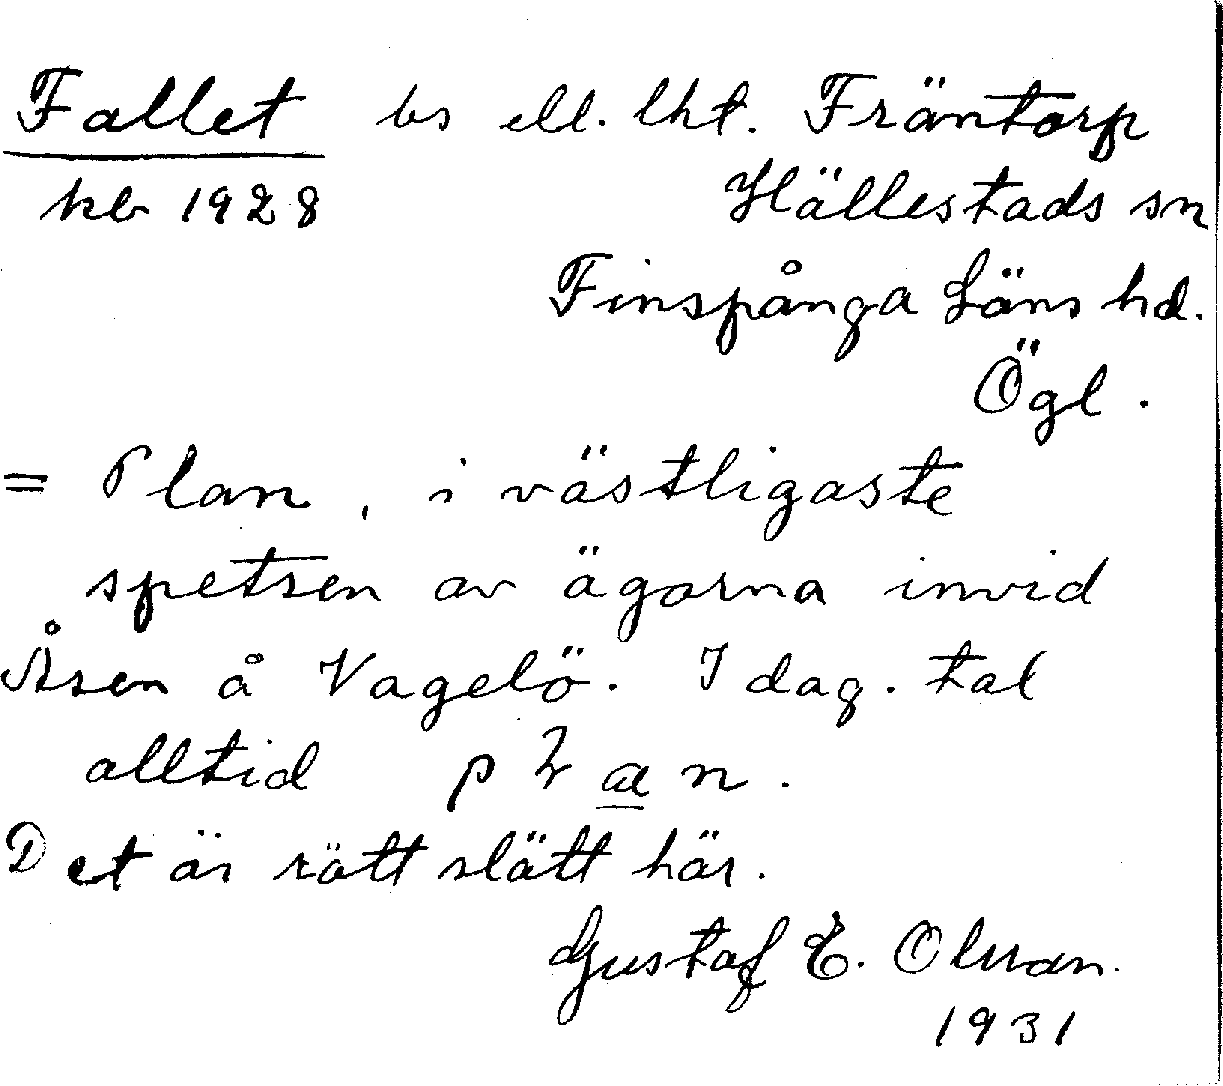 Fallet bs ell. lht. Fräntorp
kb 1928 Hällestads sn
Finspånga Läns hd.
Ögl.
= Plan, i västligaste
spetsen av ägorna invid
Åsen å Vagelö. I dag. tal
alltid plan.
Det är rätt slätt här.
Gustaf E. Olsson.
1931